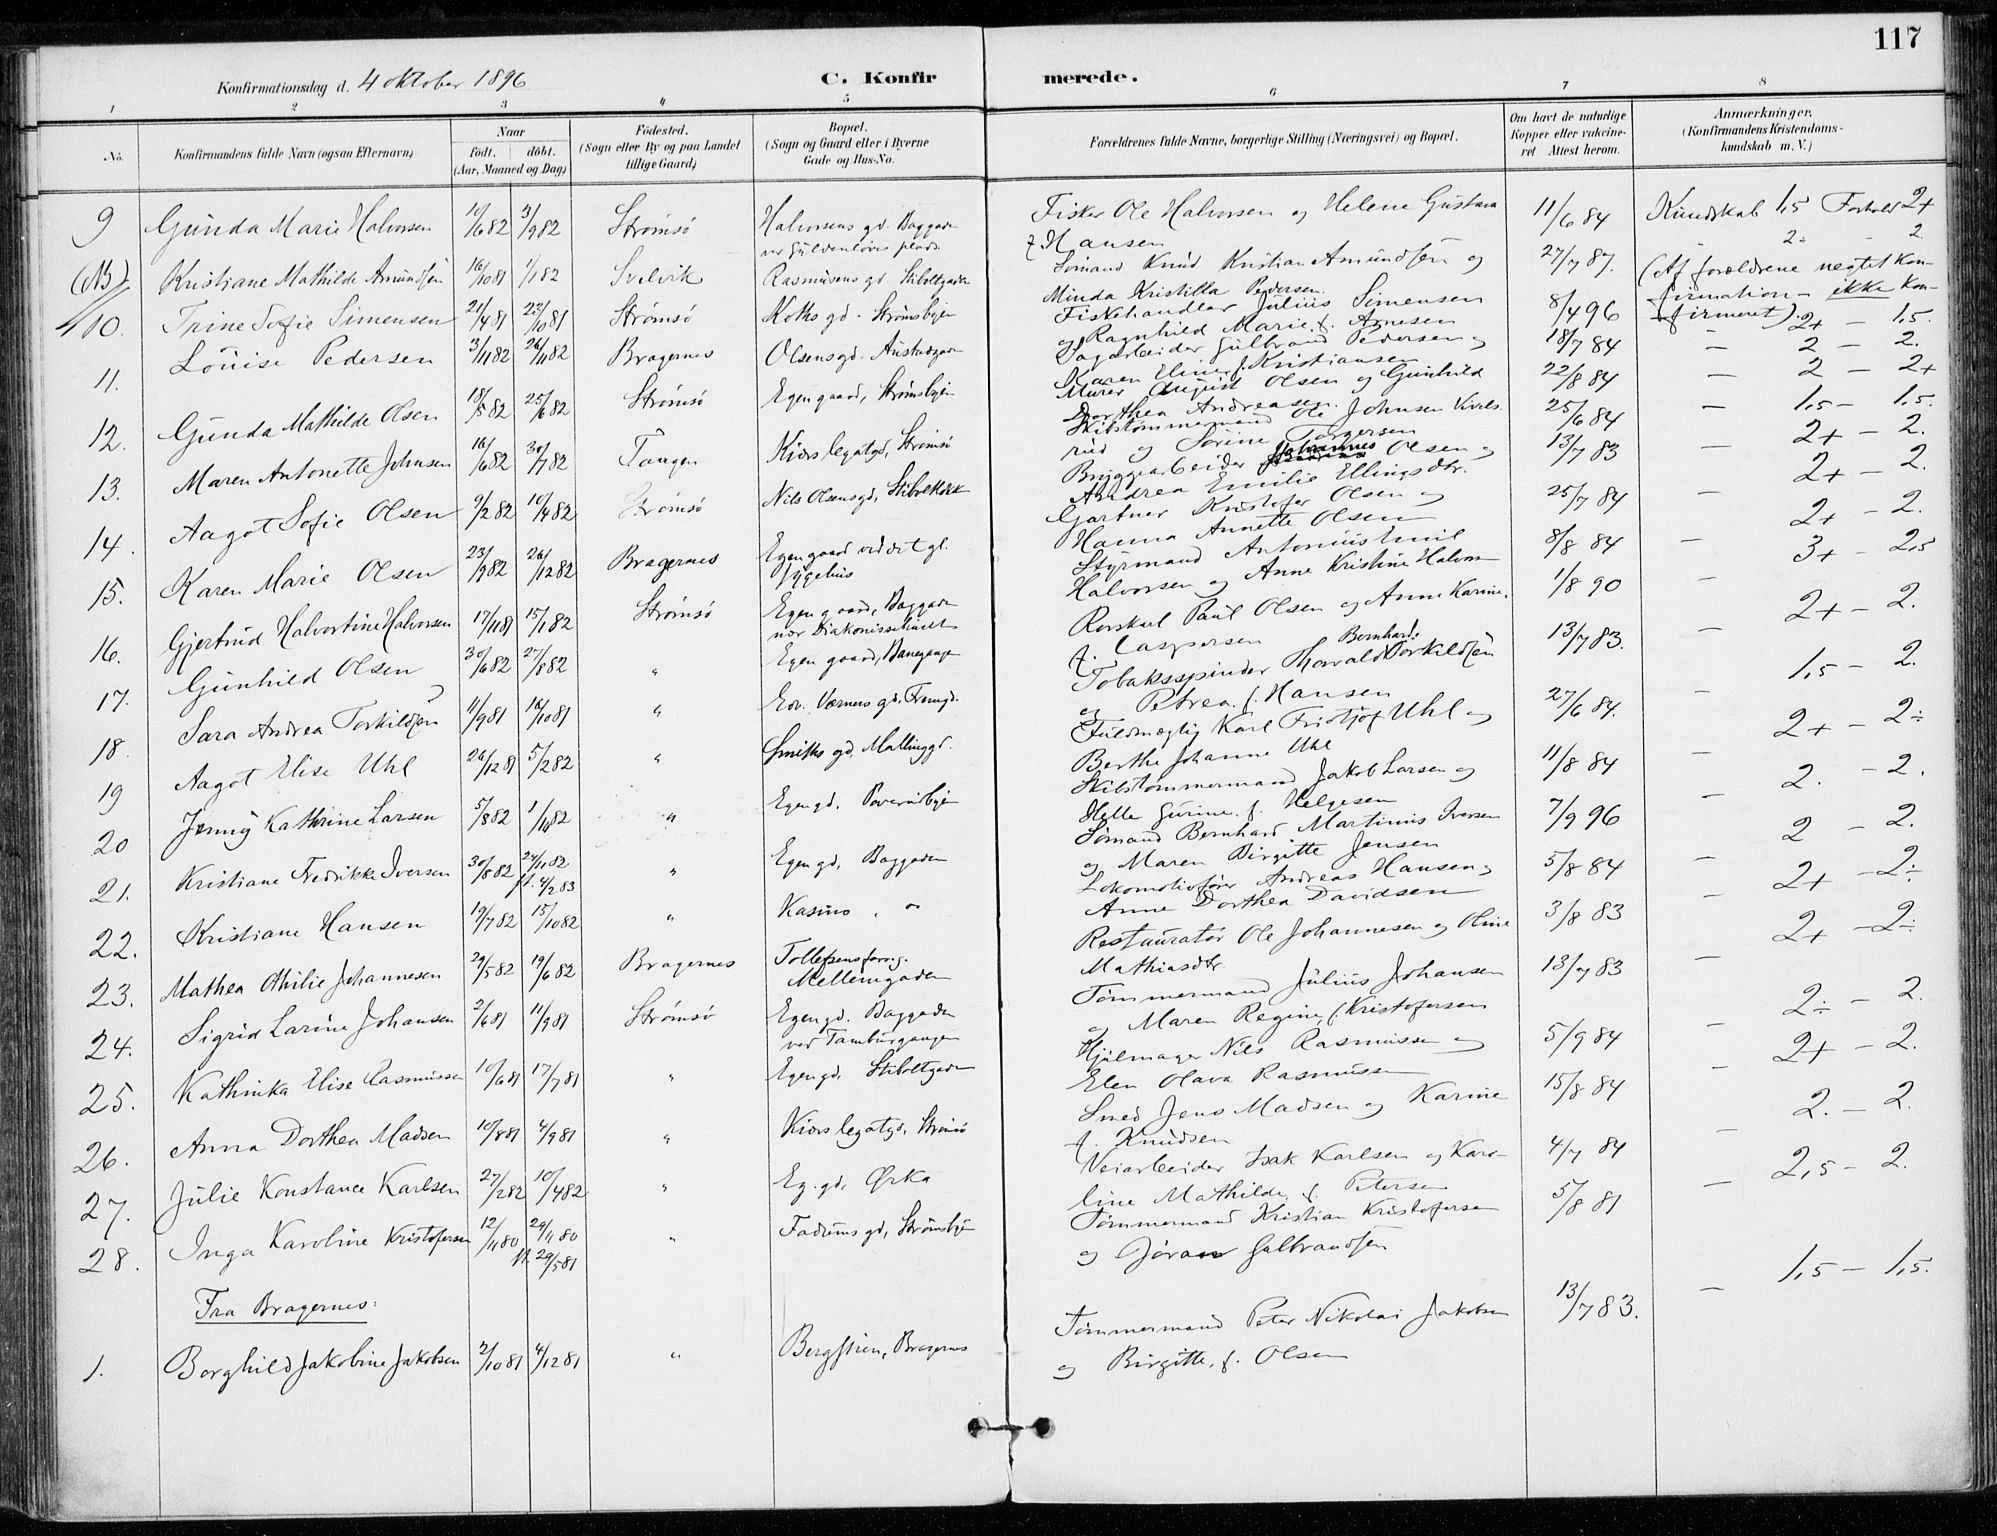 117
Konfirmationsdag d. 4 oktober 1896
C. Konfirmerede.
1 2 3 4 5 6 7 8
No. Konfirmandens fulde Navn (ogsaa Efternavn)
Naar født. døbt. (Aar, Maaned og Dag)
Fødested. (Sogn eller By og paa Landet tillige Gaard)
Bopæl. (Sogn og Gaard eller i Byerne Gade og Hus-No.
Forældrenes fulde Navne, borgerlige Stilling (Næringsvei) og Bopæl.
Om havt de naturlige Kopper eller vakcineret Attest herom.
Anmærkninger. (Konfirmandens Kristendomskundskab m. V.)
9 Gunda Marie Halvorsen 10/6 82 3/9 82 Strømsø Halvorsens gd. Baggaden ved Gyldenløves plads Fisker Ole Halvorsen og Helene Gustava f. Hansen 11/6 84 Kundskab 1,5 Forhold 2+
(NB) Kristiane Mathilde Amundsen 16/10 81 1/1 82 Svelvik Rasmusens gd. Stiboltgaden Sømand Knud Kristian Amundsen og Minda Kristilla Pedersen 27/7 87. 2÷ - 2 (Af forældrene negtet konfirmation - ikke konfirmeret).
10. Trine Sofie Simensen 21/4 81 23/10 81 Strømsø Koths gd. Strømsbyen Fiskehandler Julius Simensen og Ragnhild Marie, f. Arnesen 8/4 96 2+ - 1,5.
11. Louise Pedersen 3/11 82 26/11 82 Bragernes Olsens gd. Austadgaden Sagarbeider Gulbrand Pedersen og Karen Eline f. Kristiansen 18/7 84 - 2 - 2.
12. Gunda Mathilde Olsen 18/5 82 25/6 82 Strømsø Egen gaard, Strømsbyen Murer August Olsen og Gunhild Dorthea Andreasen 22/8 84 - 2 - 2+
13. Maren Antonette Johnsen 16/6 82 30/7 82 Tangen Kiørs legatgd, Strømsø Skibstømmermand Ole Johnsen Kivels rud og Sørine Torgersen 25/6 84 - 1,5 - 1,5.
14. Aagot Sofie Olsen 9/2 82 10/4 82 Strømsø Nils Olsens gd, Bryggearbeider Johannes Olsen og Andrea Emilie Ellingsdtr. 13/7 83 2+ - 2.
15. Karen Marie Olsen 23/9 82 26/12 82 Bragernes Egen gaard ved det gl. sygehus Gartner Kristofer Olsen og Hanna Annette Olsen 25/7 84 - 2+ - 2.
16. Gjertrud Halvortine Halvorsen 17/11 81 15/1 82 Strømsø Egen gaard, Baggaden nær Diakonissehuset Styrmand Antonius Emil Halvorsen og Anne Kristine Halvorsen 8/8 84 - 2+ - 2.
17. Gunhild Olsen 30/6 82 27/8 82 " Egen gaard, Danegangen Rorskarl Paul Olsen og Anne Karine f. Caspersen 1/8 90 - 3+ - 2,5
18. Sara Andrea Torkildsen 11/9 81 16/10 81 " Ed. Værners gd. Tobaksspinder Thorvald Bernhard Torkildsen og Petrea f. Hansen 13/7 83. - 2+ - 2.
19 Aagot Elise Uhl 26/12 81 5/2 82 " Smiths gd, Mallinggd. Fuldmægtig Karl Fridtjof Uhl og Berthe Johanne Uhl 27/6 84. - 1,5 - 2.
20 Jenny Kathrine Larsen 5/8 82 1/10 82 " Egen gd. Skibstømmermand Jakob Larsen og Helle Gurine f. Helgesen 11/8 84 - 2+ - 2÷
21. Kristiane Fredrikke Iversen 30/8 82 24/11 82 ft. 4/2 83 " Egen gd, Baggaden Sømand Bernhard Martinus Iversen og Maren Birgitte Jensen 7/9 96 - 2. - 2.
22. Kristiane Hansen 19/7 82 15/10 82 " Kasino, " Lokomotivfører Andreas Hansen og Anne Dorthea Davidsen 5/8 84 - 2 - 2.
23. Mathea Othilie Johannesen 29/5 82 19/6 82 Bragernes Tollefsens Mellemgaden Restauratør Ole Johannesen og Oline Mathiasdtr. 3/8 83 - 2+ - 2÷
24. Sigrid Larine Johansen 2/6 81 11/9 81 Strømsø Egen gd. Baggaden ved Tamburgangen Tømmermand Julius Johansen og Maren Regine, f. Kristofersen 13/7 83 - 2+ - 2÷
25. Kathinka Elise Rasmussen 10/6 81 17/7 81 " Egen gd, Stiboltgaden Hjulmager Nils Rasmussen og Elen Olava Rasmussen 5/9 84 - 2÷ - 2.
26. Anna Dorthea Madsen 10/8 81 4/9 81 " Kiørs legatgd, Strømsø Smed Jens Madsen og Karine f. Knudsen 15/8 84 - 2+ - 2.
27. Julie Konstance Karlsen 27/2 82 10/4 82 " Eg. gd, Ørka Veiarbeider Isak Karlsen og Karoline Mathilde, f. Petersen 4/7 84 - 2. - 2.
28. Inga Karoline Kristofersen 12/11 80 29/11 80 ft. 29/5 81 " Fadums gd, Strømsbyen Tømmermand Kristian Kristofersen og Jøran Gulbrandsen 5/8 81 - 2,5 - 2.
Fra Bragernes:
1. Borghild Jakobine Jakobsen 2/10 81 4/12 81 " Bergstien, Bragernes Tømmermand Peter Nikolai Jakobsen og Birgitte, f. Olsen 13/7 83. - 1,5 - 1,5.